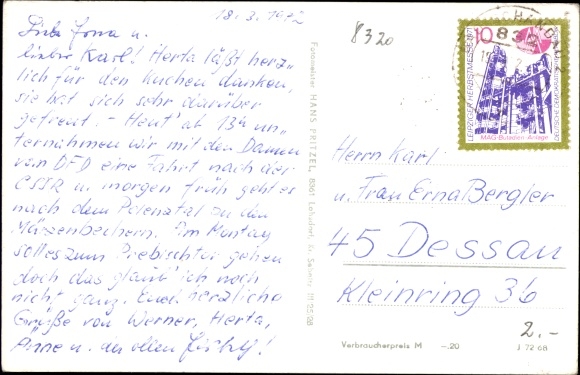 18.3.1972
Liebe Erna u.
lieber Karl! Herta läßt herz-
lich für den Kuchen danken,
sie hat sich sehr darüber
gefreut. - Heut' ab 13h un-
ternahmen wir mit den Damen
vom DFD eine Fahrt nach der
CSSR u. morgen früh geht es
nach dem Polenztal zu den
Märzenbechern. Am Montag
solles zum Prebischtor gehen
doch das glaub' ich noch
nicht ganz. Euch herzliche
Grüße von Werner, Herta,
Anne u. der ollen
Fotomeister HANS PRITZEL, 8361
8320
10
LEIPZIGER HERBSTMESSE 1971
MAG-Butadien-Anlage
DEUTSCHE DEMOKRATISCHE
Herrn Karl
u. Frau Erna Bergler
45 Dessau
Kleinring 36
2.-
Verbraucherpreis M -.20
J 72 68